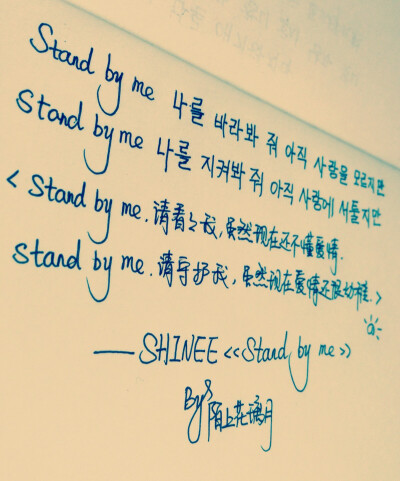 Stand by me 나를 바라봐 줘 아직 사랑을 모르지만
Stand by me 나를 지켜봐 줘 아직 사랑에 서툴지만
< Stand by me. 请看之我, 虽然现在还不懂爱情.
Stand by me. 请守护我, 虽然现在爱情还很幼稚. >
—— SHINEE <<Stand by me>>
By 陌上花璃月